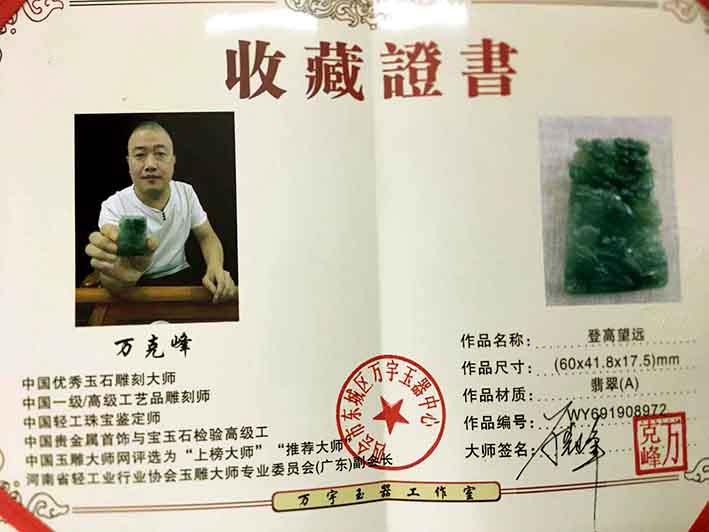 收藏證書
万克峰
中国优秀玉石雕刻大师
中国一级/高级工艺品雕刻师
中国轻工珠宝鉴定师
中国贵金属首饰与宝玉石检验高级工
中国玉雕大师网评选为“上榜大师”“推荐大师”
河南省轻工业行业协会玉雕大师专业委员会(广东)副会长
四会市东城区万字玉器中心
作品名称: 登高望远
作品尺寸: (60x41.8x17.5)mm
作品材质: 翡翠(A)
作品编号: WY691908972
大师签名:
万克峰
万字玉器工作室